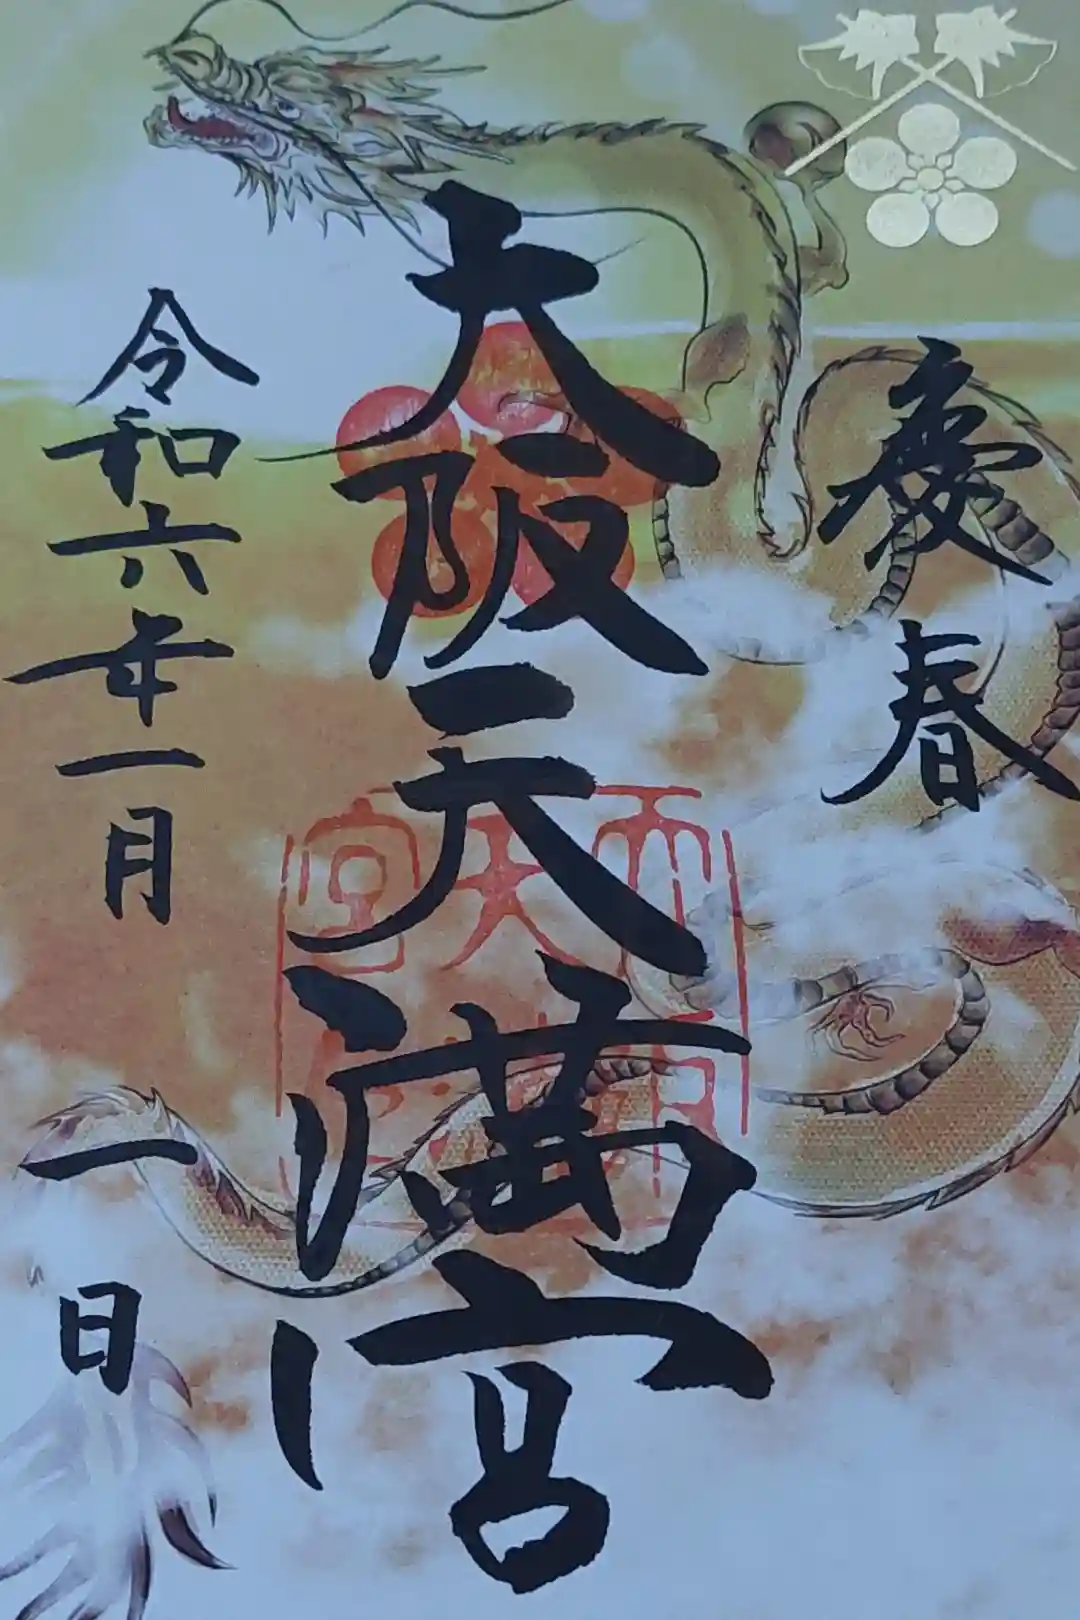 慶春
大阪天満宮
令和六年一月一日